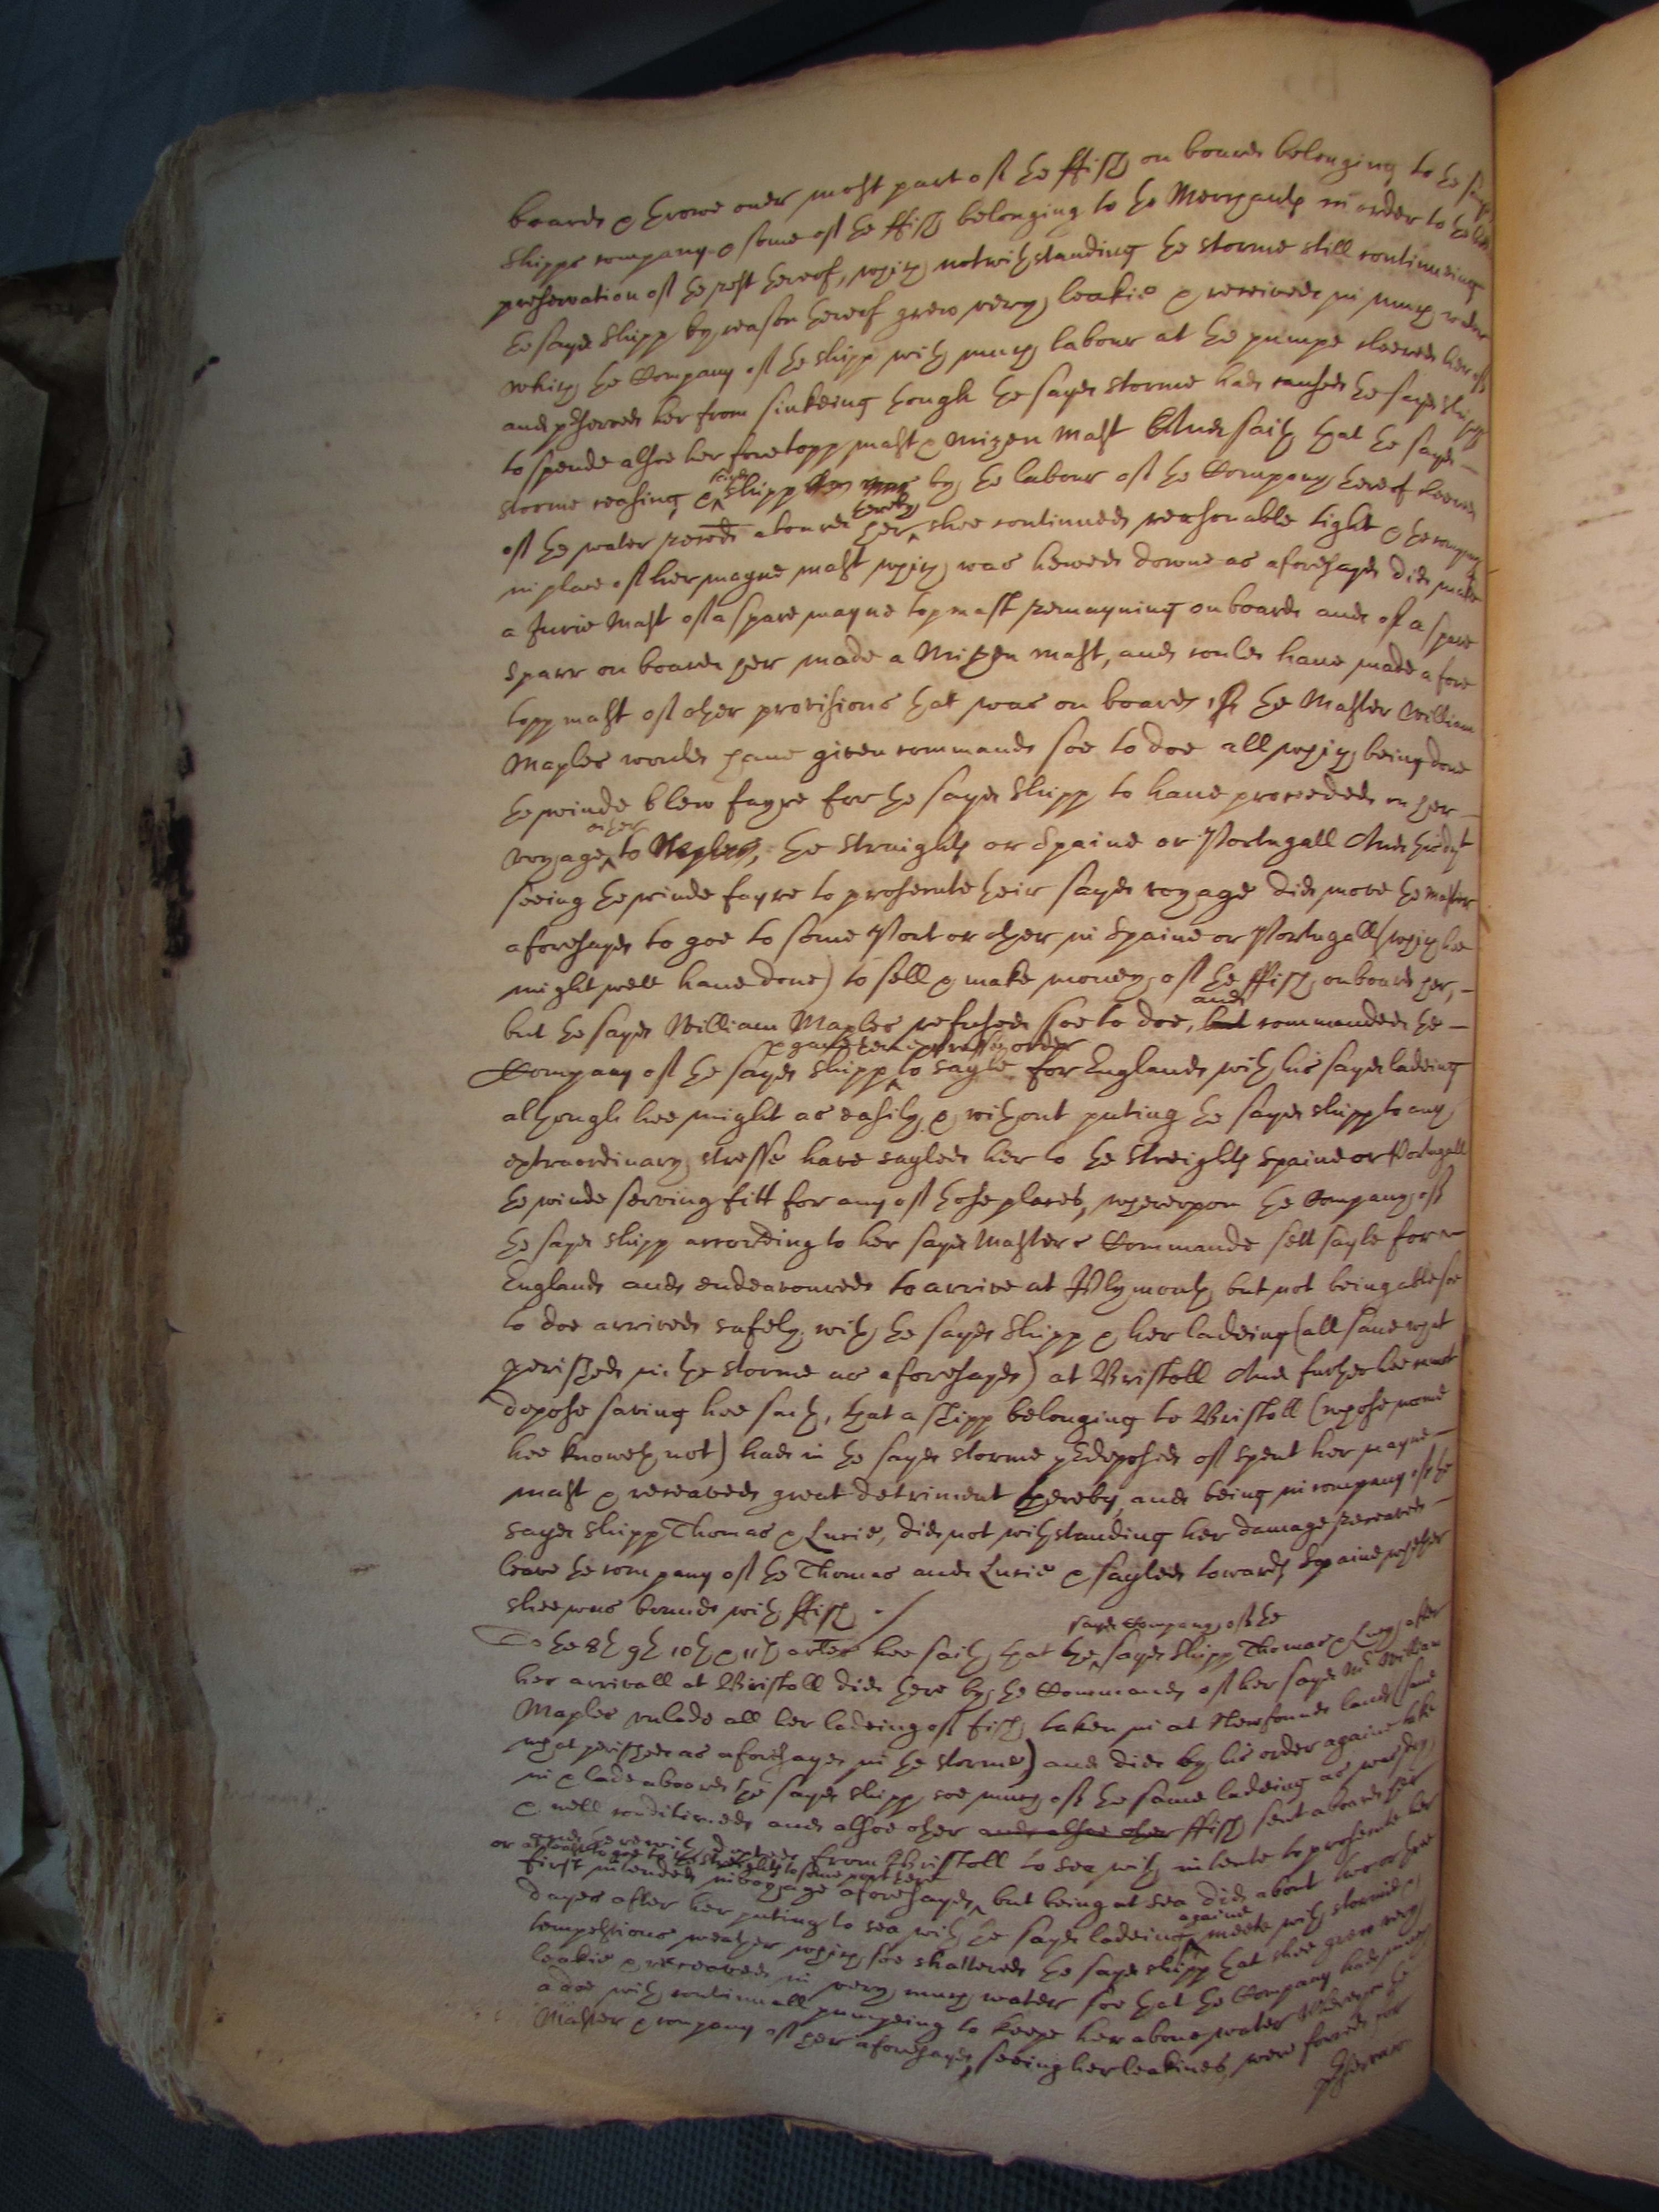 board & throwe over most part of the ffish on board belonging to the sayd
shipps company & some of the ffish belonging to the Merchants in order to the
preservation of the rest thereof, which notwithstanding the storme still continueing
the sayd shipp by reason thereof grew very leakie & received in much water
which the Company of the shipp with much labour at the pumpe cleered her of
and p(re)served her from sinkeing though the sayd storme had caused the sayd shipp
to spende alsoe her foretopp mast & Mizen Mast And saith that the sayd
storme ceasing, & sayd shipp by the labour of the Company thereof cleered
of the water aboard her, thereby shee continued reasonable tight & the company
in place of her mayne mast which was hewed downe as aforesayd did make
a Jurie Mast of a spare mayne topmast remayning on board and of a spare
sparr on board her made a Mizen mast, and could have made a fore
topp mast of other provisions that was on board if the Master William
Maples would have given command soe to doe all which being done
the winde blew fayre for the sayd shipp to have proceeded on her
voyage either to Naples, the Straights or Spaine or Portugall And this dept
seeing the winde fayre to prosecute their sayd voyage did move the master
aforesayd to goe to some Port or other in Spaine or Portugall (which hee
might well have done) to sell & make money of the ffish on board her,
but the sayd William Maples refused soe to doe, but and commanded the
Company of the sayd shipp & gave them expresse order to sayle for England with his sayd ladeing
although hee might as easily & without puting the sayd shipp to any
extraordinary stresse have sayled her to the Streights Spaine or Portugall
the winde serving fitt for any of those places, whereupon the Company of
the sayd shipp according to her sayd Masters Commande sett sayle for
England and endeavoured to arrive at Plymouth but not being able soe
to doe arrived safely with the sayd shipp & her ladeing (all save what
perished in the storme as aforesayd) at Bristoll And further hee cannot
depose saving hee saith, that a shipp belonging to Bristoll (whose name
hee knoweth not) had in the sayd storme p(re)deposed of spent her mayne
mast & received great detriment thereby, and being in company of the
sayd shipp Thomas & Lucie, did notwithstanding her damage receaved
leave the company of the Thomas and Lucie & sayled towards Spaine whether
shee was bound with ffish ./
To the 8th 9th 10th & 11th artles hee saith that the sayd Company of the sayd shipp Thomas & Lucy after
her arrivall at Bristoll did there by the Command of her sayd Mr William
Maples unlade all her ladeing of fish taken in at Newfound land (save
what perished as aforesayd in the storme) and did by his order againe take
in & lade aboard the sayd shipp soe much of the same ladeing as was dry
& well conditioned and alsoe other and alsoe other ffish sent aboard her
and therewith departed from Bristoll to sea with intente to prosecute her
first intended voyage aforesayd, or at least to goe to the streights to some port there but being at sea did about two or three
dayes after her puting to sea with the sayd ladeing againe meete with stormie &
tempestious weather which soe shattered the sayd shipp that shee grew very
leakie & receaved in very much water soe that the Company had much
adoe with continuall pumpeing to keepe her above water Whereupon the
Master & company of her aforesayd, seeing her leakines, were forced for